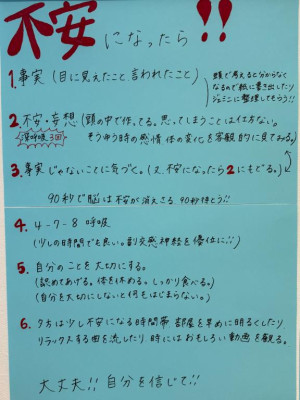 不安になったら!!
1. 事実 (目に見えたこと、言われたこと)
頭で考えると分からなく
なるので紙に書き出したり
ジェミニに整理してもらう!!
2. 不安・妄想 (頭の中で作ってる。思ってしまうことは仕方ない。
深呼吸3回
そうゆう時の感情 体の変化を客観的に見てみる。)
3. 事実じゃないことに気づく。(又、不安になったら2にもどる。)
90秒で脳は不安が消えさる 90秒待とう!!
4. 4-7-8 呼吸
(少しの時間でも良い。副交感神経を優位に!!)
5. 自分のことを大切にする。
(認めてあげる。体を休める。しっかり食べる。)
(自分を大切にしないと何もはじまらない。)
6. 夕方は少し不安になる時間帯 部屋を早めに明るくしたり、
リラックスする曲を流したり、時にはおもしろい動画を観る。
大丈夫!! 自分を信じて!!